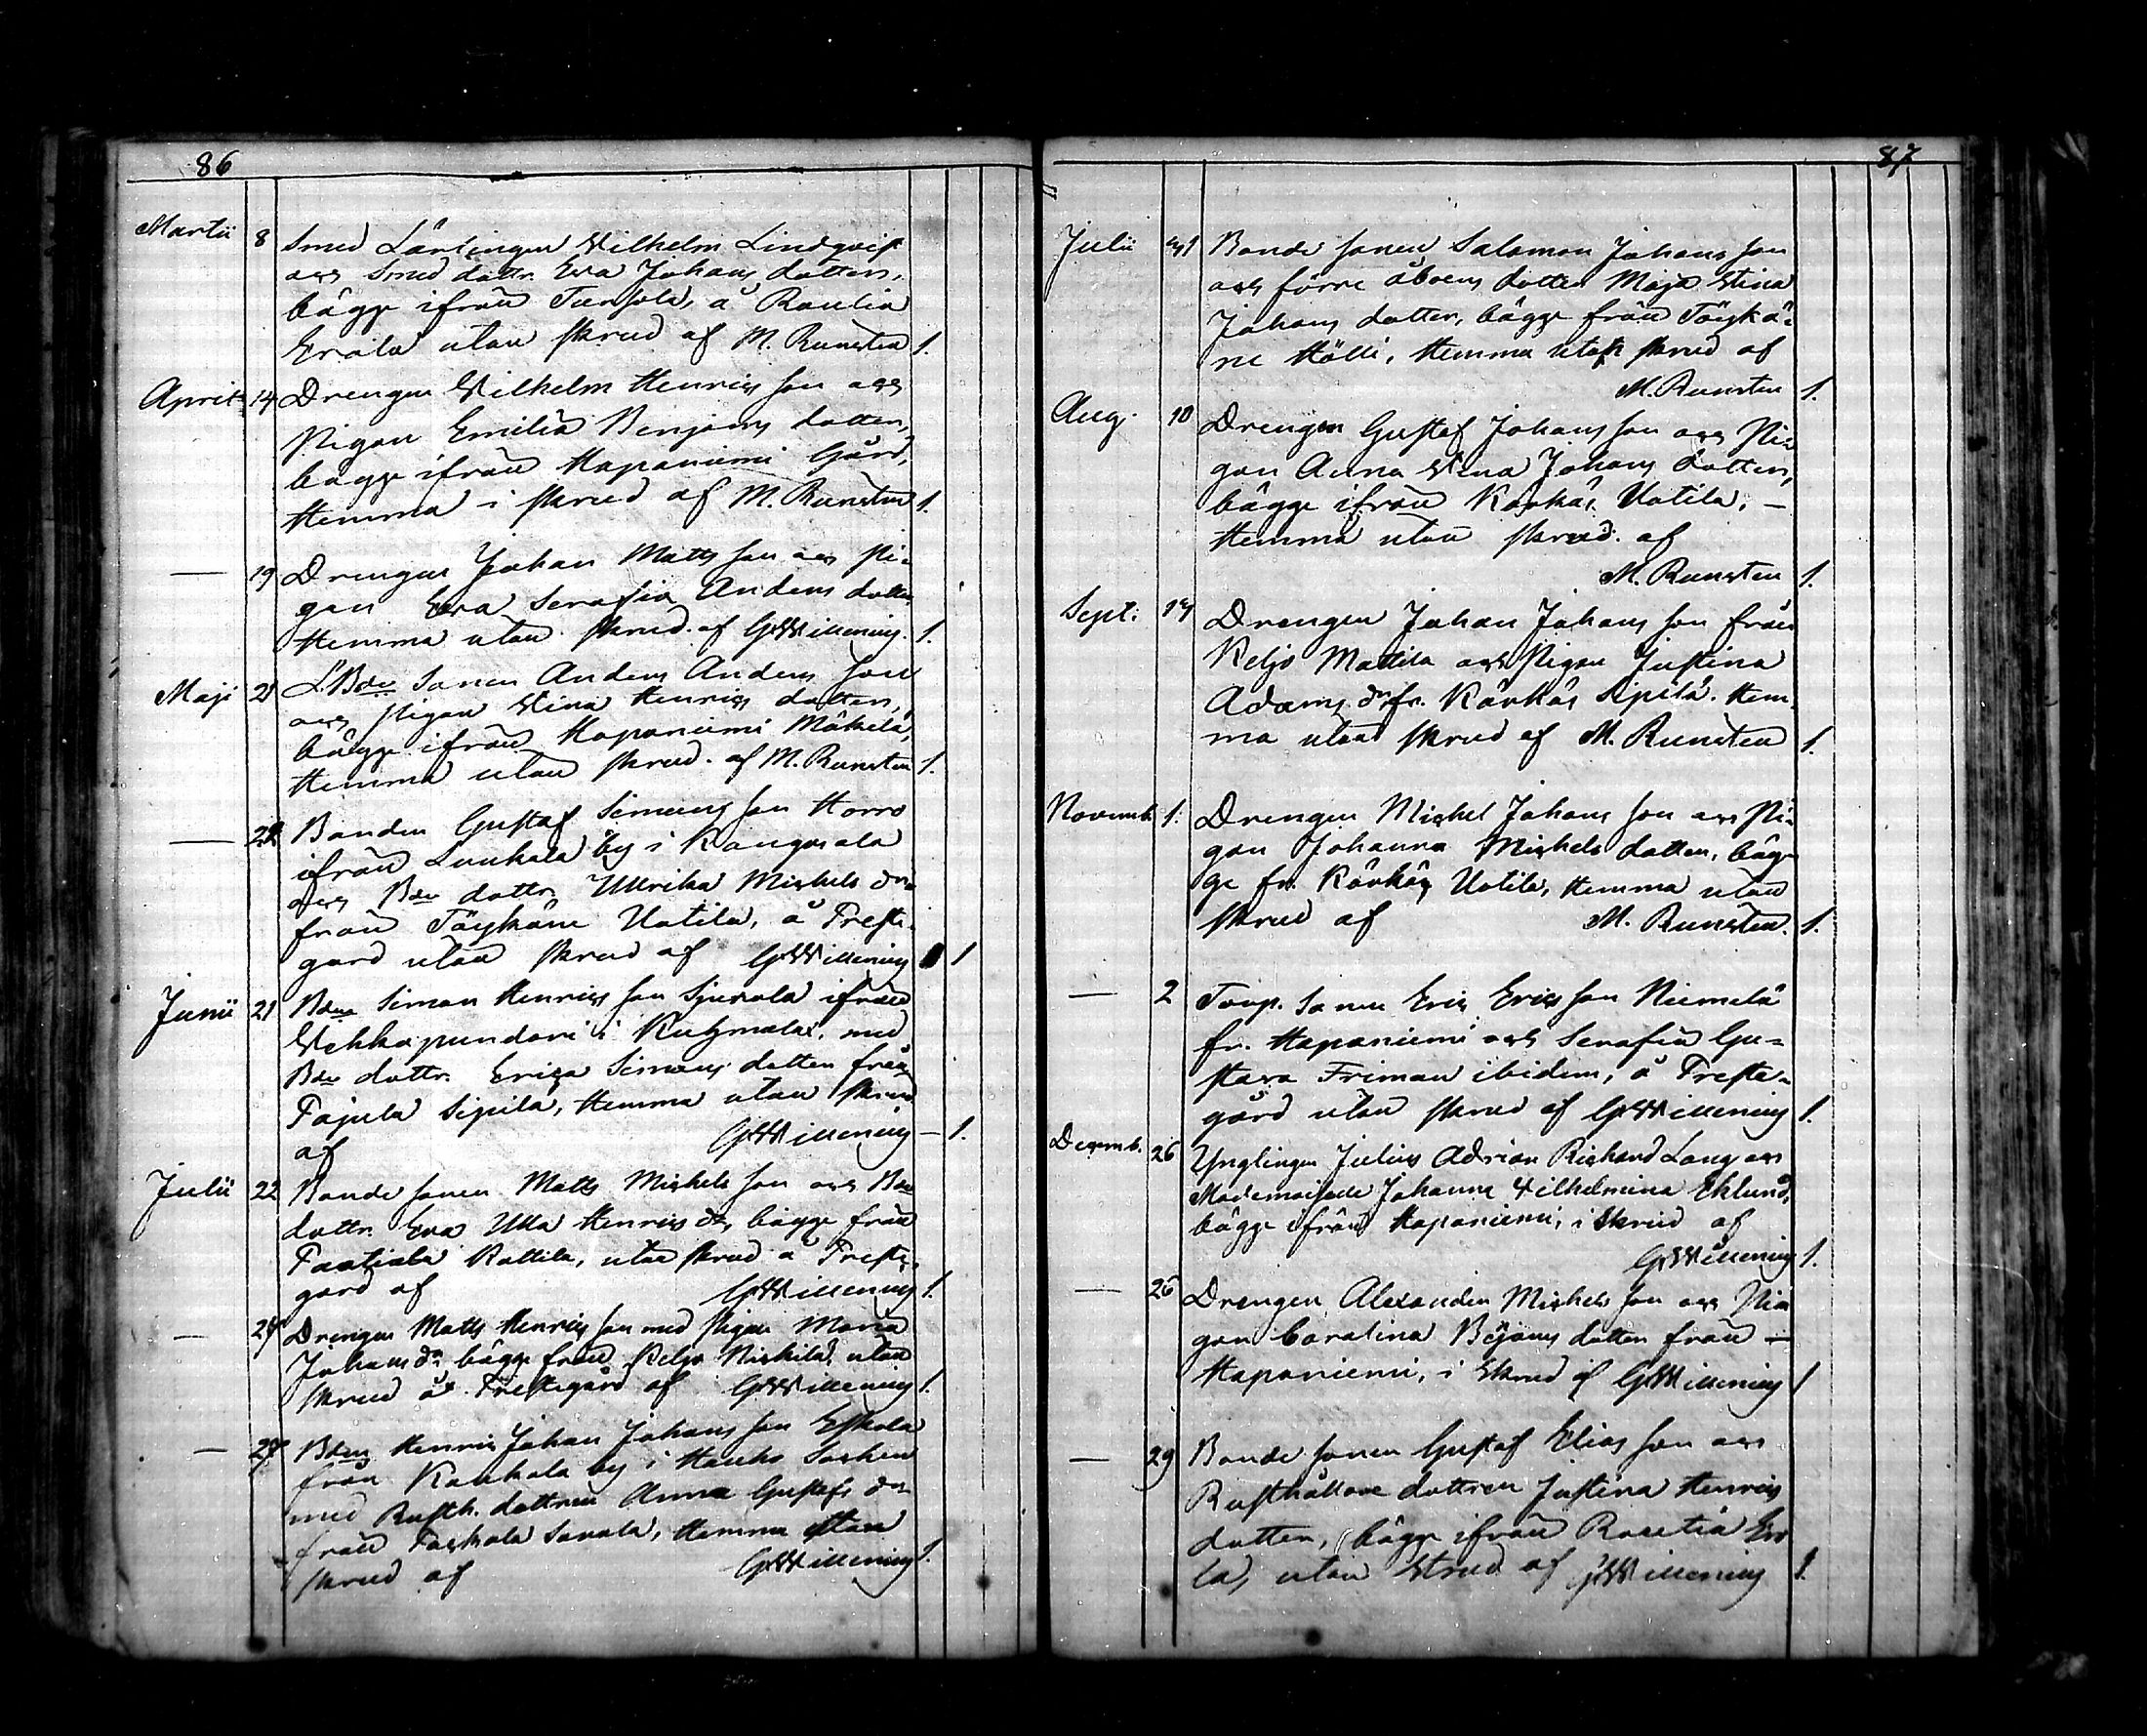 86
Martii 8 Smed Lärlingen Wilhelm Lindqvist
och Smed dottr. Eva Johans dotter,
bägge ifrån Tursola, å Rautia
Erola utan skrud af M. Runsten 1.
April 14 Drengen Wilhelm Henrics son och
Pigan Emilia Benjams dotter,
bägge ifrån Haponiemi Gård,
Hemma i skrud af M. Runsten 1.
— 19 Drengen Johan Matts son och Pi-
gan Eva Serafia Anders dotter
Hemma utan skrud. af GWillening. 1.
Maji 21 Bde Sonen Anders Anders son
och Pigan Stina Henrics dotter,
bägge ifrån Haponiemi Mäkelä,
Hemma utan skrud. af M. Runsten 1.
— 22 Bonden Gustaf Simons son Horro
ifrån Liukala by i Kangasala
och Bde dottr. Ullrika Michels dr
från Töykäne Uotila, å Preste-
gård utan skrud af GWillening 1
Junii 21 Bden Simon Henrics son Sjukola ifrån
Vehkapundari i Kuhmalax, med
Bde dottr. Erica Simons dotter från
Pajula Sipila, Hemma utan skrud
af GWillening — 1.
Julii 22 Bonde sonen Matts Michels son och Bde
dottr. Eva Ulla Henrics dr, bägge från
Pantiala Rattila, utan skrud å Preste-
gård af GWillening 1.
— 24 Drengen Matts Henrics son med Pigan Maria
Johans dr bägge från Keljo Nickilä utan
skrud å Prestegård af GWillening 1.
— 27 Bden Henric Johan Johans son Eskola
från Kaukola by i Hauho Socken
med Rusth. dottren Anna Gustafs dr
från Paskola Savola, Hemma utan
skrud af GWillening 1.
87
Julii 31 Bonde sonen Salomon Johans son
och förre åboens dotter Maja Stina
Johans dotter, bägge från Töykä-
ne Hölli, Hemma utan skrud af
M. Runsten 1.
Aug. 10 Drengen Gustaf Johans son och Pi-
gan Anna Stina Johans dotter,
bägge ifrån Kävkäs Uotila, —
Hemma utan skrud. af
M. Runsten 1.
Sept. 14 Drengen Johan Johans son från
Keljo Mattila och Pigan Justina
Adams dr fr. Kävkäs Sipilä. Hem-
ma utan skrud af M. Runsten 1.
Novemb. 1. Drengen Michel Johans son och Pi-
gan Johanna Michels dotter, bäg-
ge fr. Kävkäs Uotila, Hemma utan
skrud af M. Runsten. 1.
— 2 Torp. Sonen Eric Erics son Niemelä
fr. Haponiemi och Serafia Gu-
stava Friman ibidem, å Preste-
gård utan skrud af GWillening 1.
Decemb. 26 Ynglingen Julius Adrian Richard Lang och
Mademoiselle Johanna Wilhelmina Eklund,
bägge ifrån Haponiemi, i Skrud af
GWillening 1.
— 26 Drengen Alexander Michels son och Pi-
gan Carolina Bejams dotter från —
Haponiemi, i Skrud af GWillening 1
— 29 Bonde sonen Gustaf Elias son och
Rusthållare dottren Justina Henrics
dotter, bägge ifrån Rautia Ero
la, utan Skrud af GWillening 1.